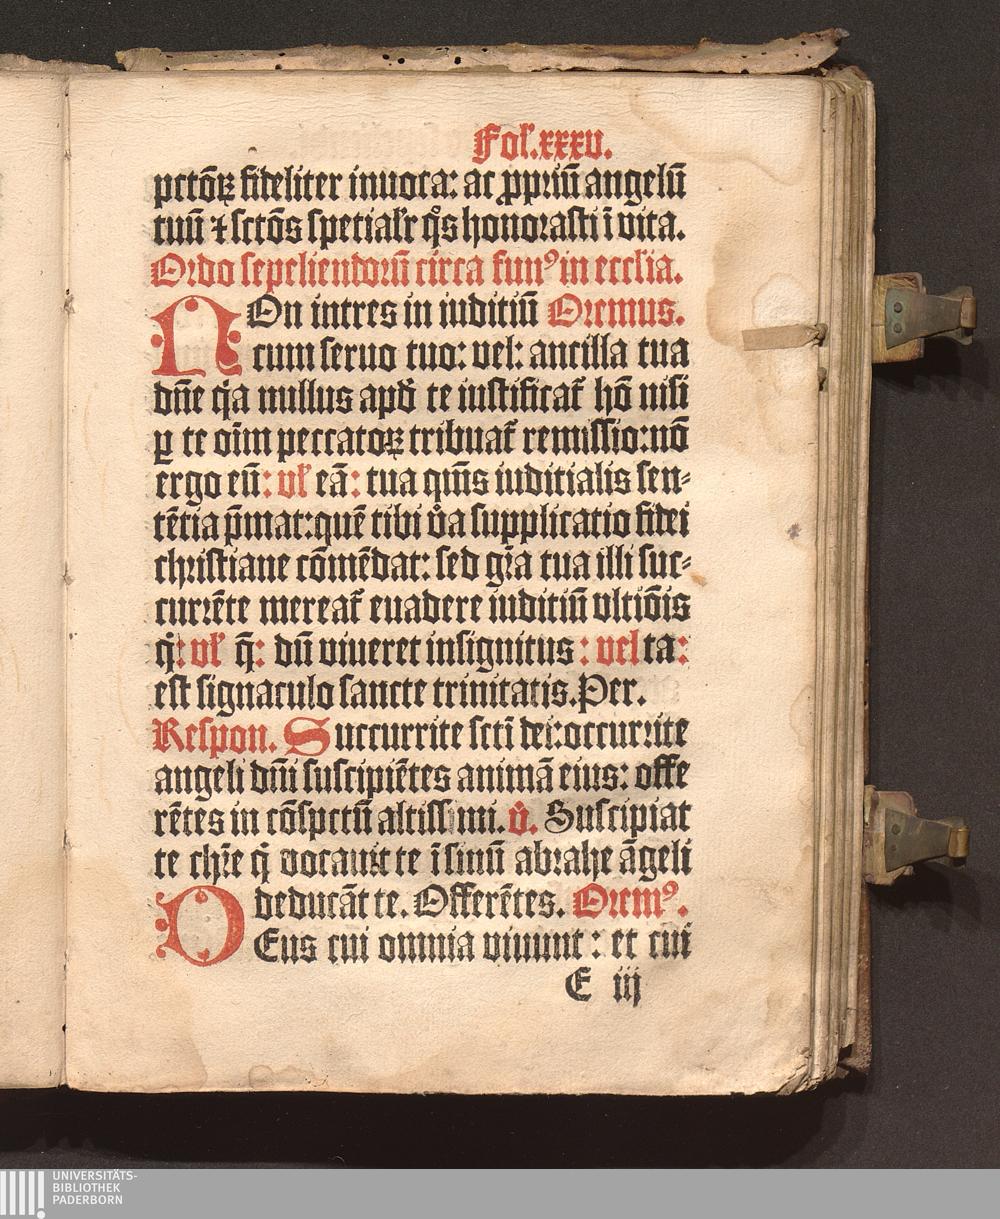 Fol. xxxv.
pctõꝝ fideliter inuoca: ac ꝓpriũ angelũ
tuũ ⁊ sctõs spetialr̃ q̃s honorasti ĩ vita.
Ordo sepeliendorũ circa funꝰ in ecclia.
NOn intres in iuditiũ Oremus.
cum seruo tuo: vel: ancilla tua
dñe q̃a nullus apd̃ te iustificat̃ hõ nisi
ꝑ te oĩm peccatoꝝ tribuat̃ remissio: nõ
ergo eũ: vl̃ eã: tua qm̃s iuditialis sen⸗
tẽtia p̃mat: quẽ tibi v̊a supplicatio fidei
christiane cõmẽdat: sed gr̃a tua illi suc⸗
currẽte mereat̃ euadere iuditiũ vltiõis
q̇: vl̃ q̃: dũ viueret insignitus: vel ta:
est signaculo sancte trinitatis. Per.
Respon. Succurrite sctĩ dei: occurrite
angeli dñi suscipiẽtes animã eius: offe
rẽtes in cõspctũ altissimi. v̊. Suscipiat
te chr̃e q̇ vocauit te ĩ sinũ abrahe ãgeli
deducãt te. Offerẽtes. Oremꝰ.
DEus cui omnia viuunt: et cui
E iij
UNIVERSITÄTS-
BIBLIOTHEK
PADERBORN